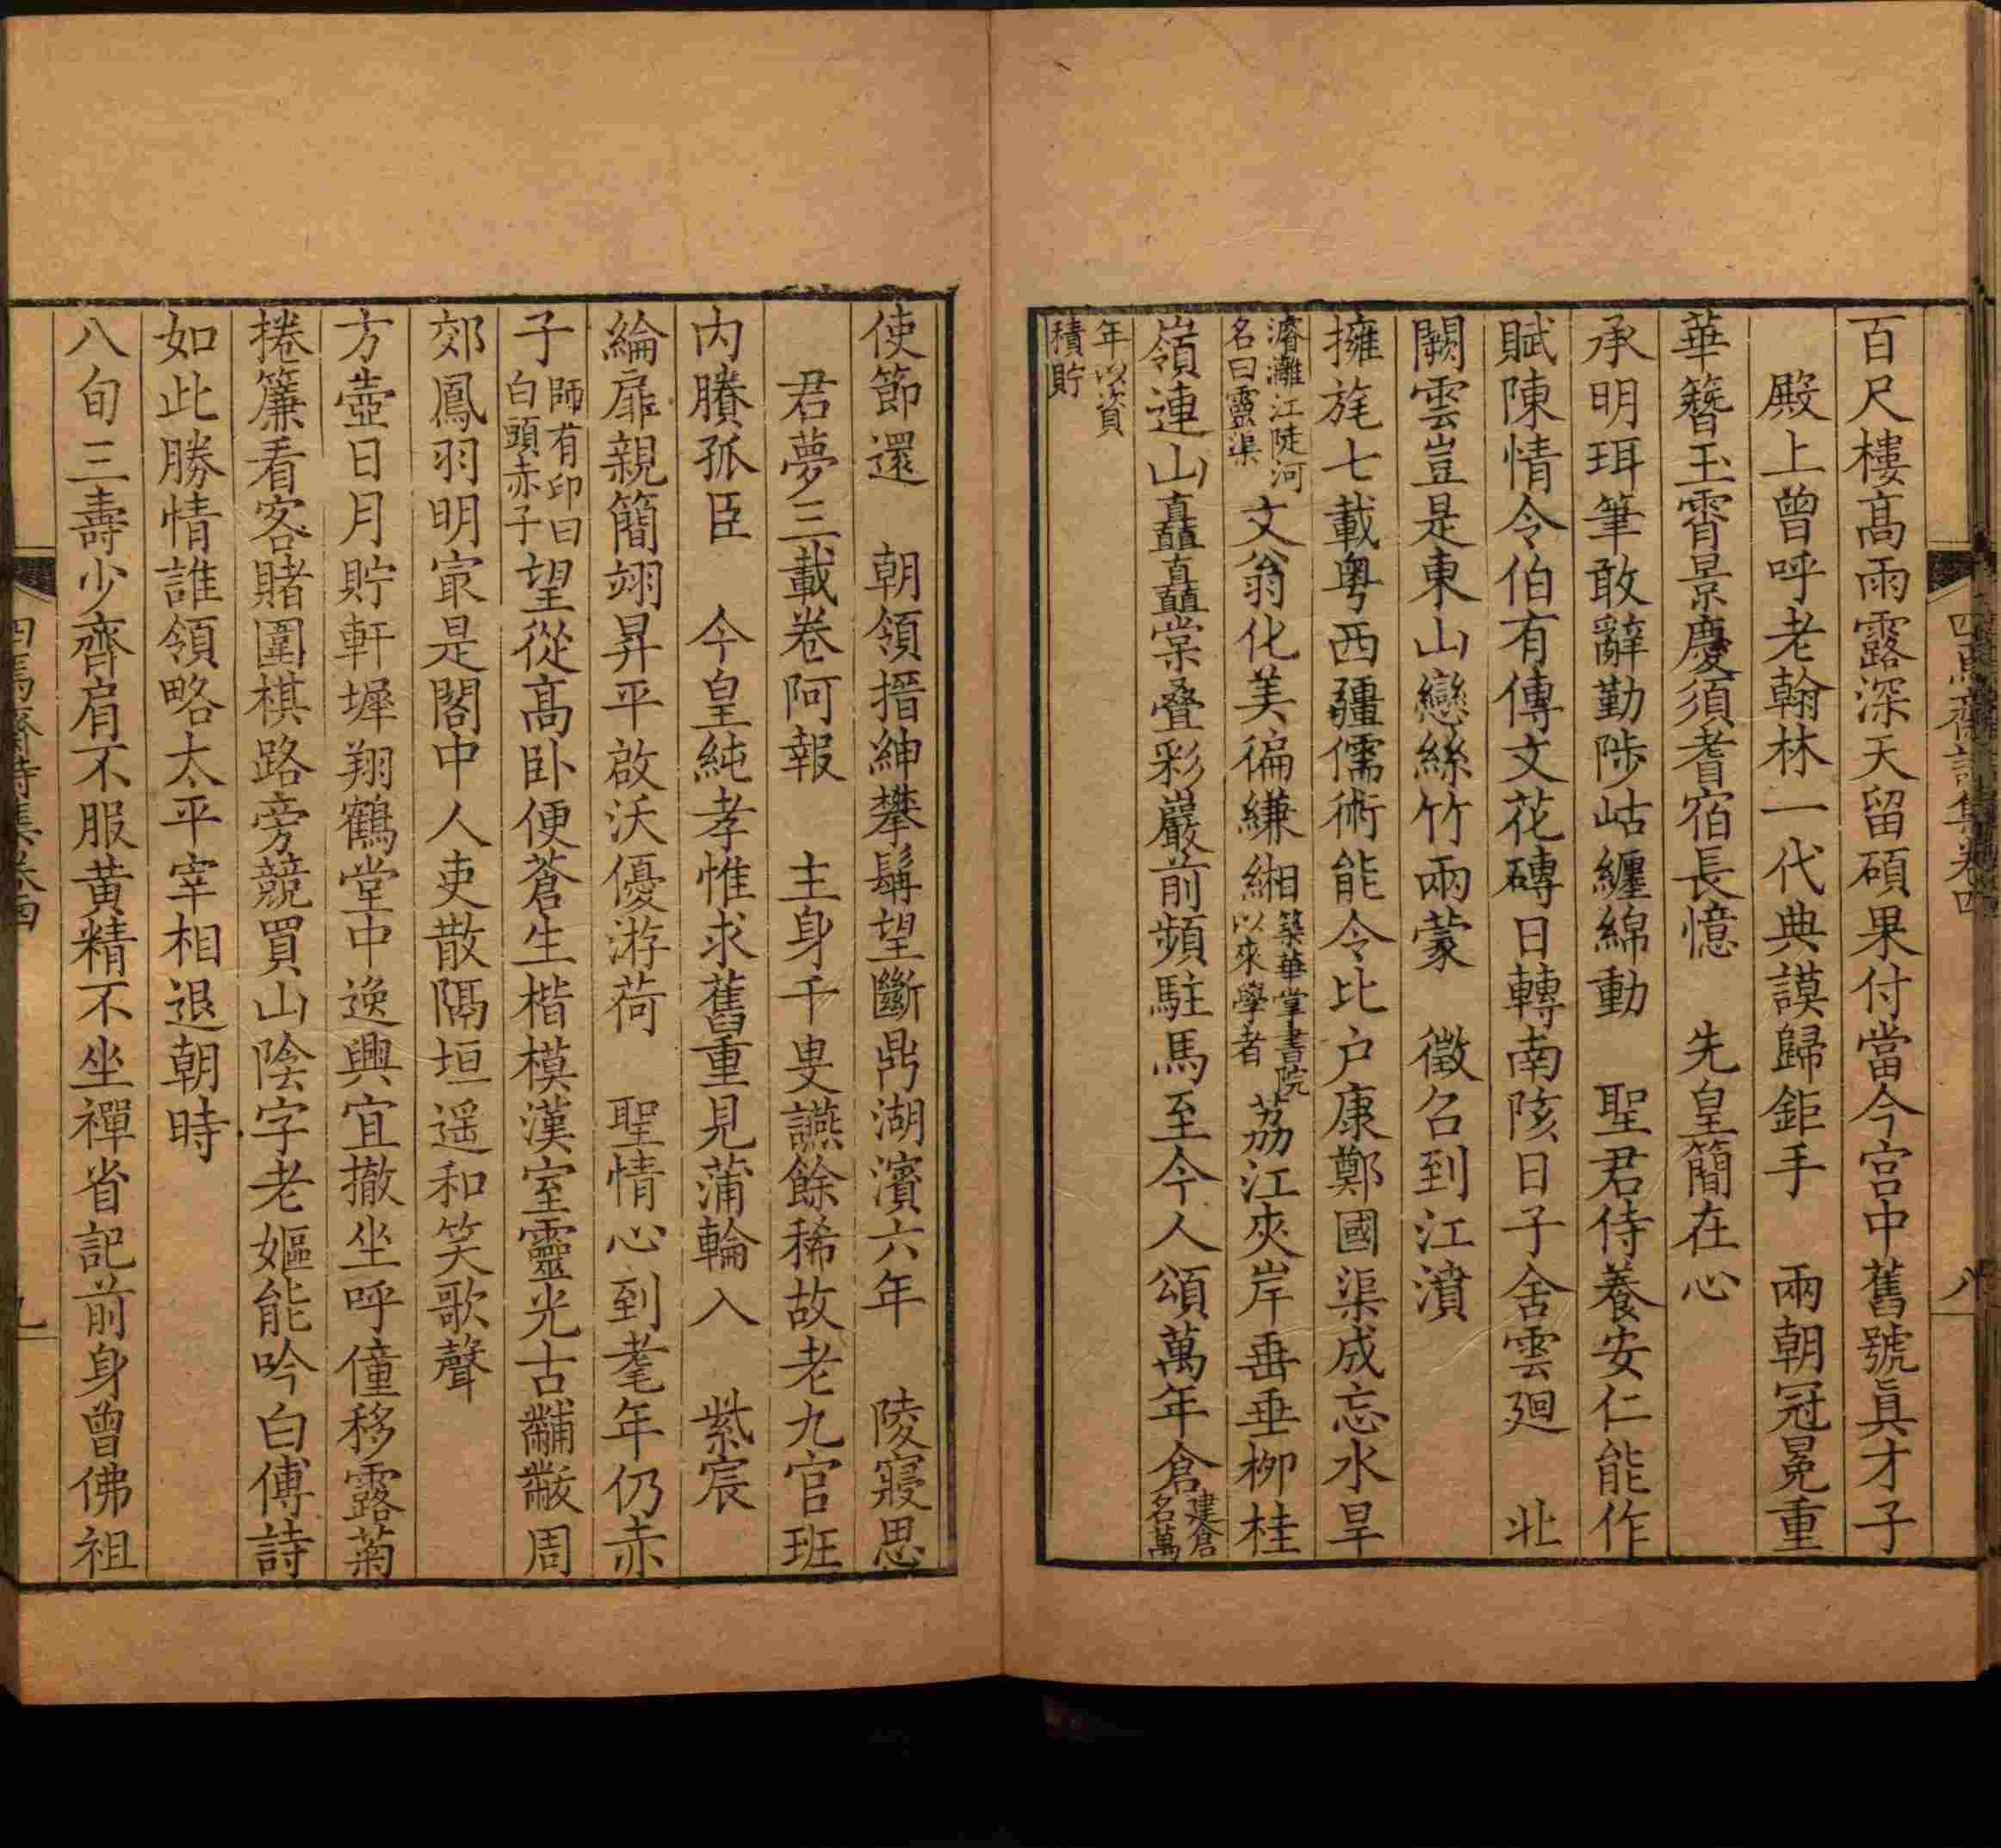 百尺樓高雨露深天留碩果付當今宮中舊號眞才子
殿上曾呼老翰林一代典謨歸鉅手　兩朝冠冕重
華簪玉霄景慶須耆宿長憶　先皇簡在心
承明珥筆敢辭勤陟岵纏綿動　聖君侍養安仁能作
賦陳情令伯有傳文花磚日轉南陔日子舍雲廻　北
闕雲豈是東山戀絲竹兩蒙　徵召到江濆
擁旄七載粤西疆儒術能令比户康鄭國渠成忘水旱
濬灕江陡河名曰靈渠文翁化美徧縑緗築華掌書院以來學者荔江夾岸毌垂柳桂
嶺連山矗矗棠叠彩巖前頻駐馬至今人頌萬年倉建倉名萬
年以資積貯
四馬齋詩集卷四
八
使節還　朝領搢紳攀髯望斷鼎湖濱六年　陵寢思
君夢三載卷阿報　主身千叟讌餘稀故老九官班
内賸孤臣　今皇純孝惟求舊重見蒲輪入　紫宸
綸扉親簡翊昇平啟沃優游荷　聖情心到耄年仍赤
子師有印曰白頭赤子望從高卧便蒼生楷模漢室靈光古黼黻周
郊鳳羽明㝡是閣中人吏散隔垣遥和笑歌聲
方壺日月貯軒墀翔鶴堂中逸興宜撤坐呼僮移露菊
捲簾看客賭圍棋路旁競買山陰字老嫗能吟白傅詩
如此勝情誰領略太平宰相退朝時
八旬三壽少齊肩不服黄精不坐禪省記前身曾佛祖
四馬齋詩集卷四
九